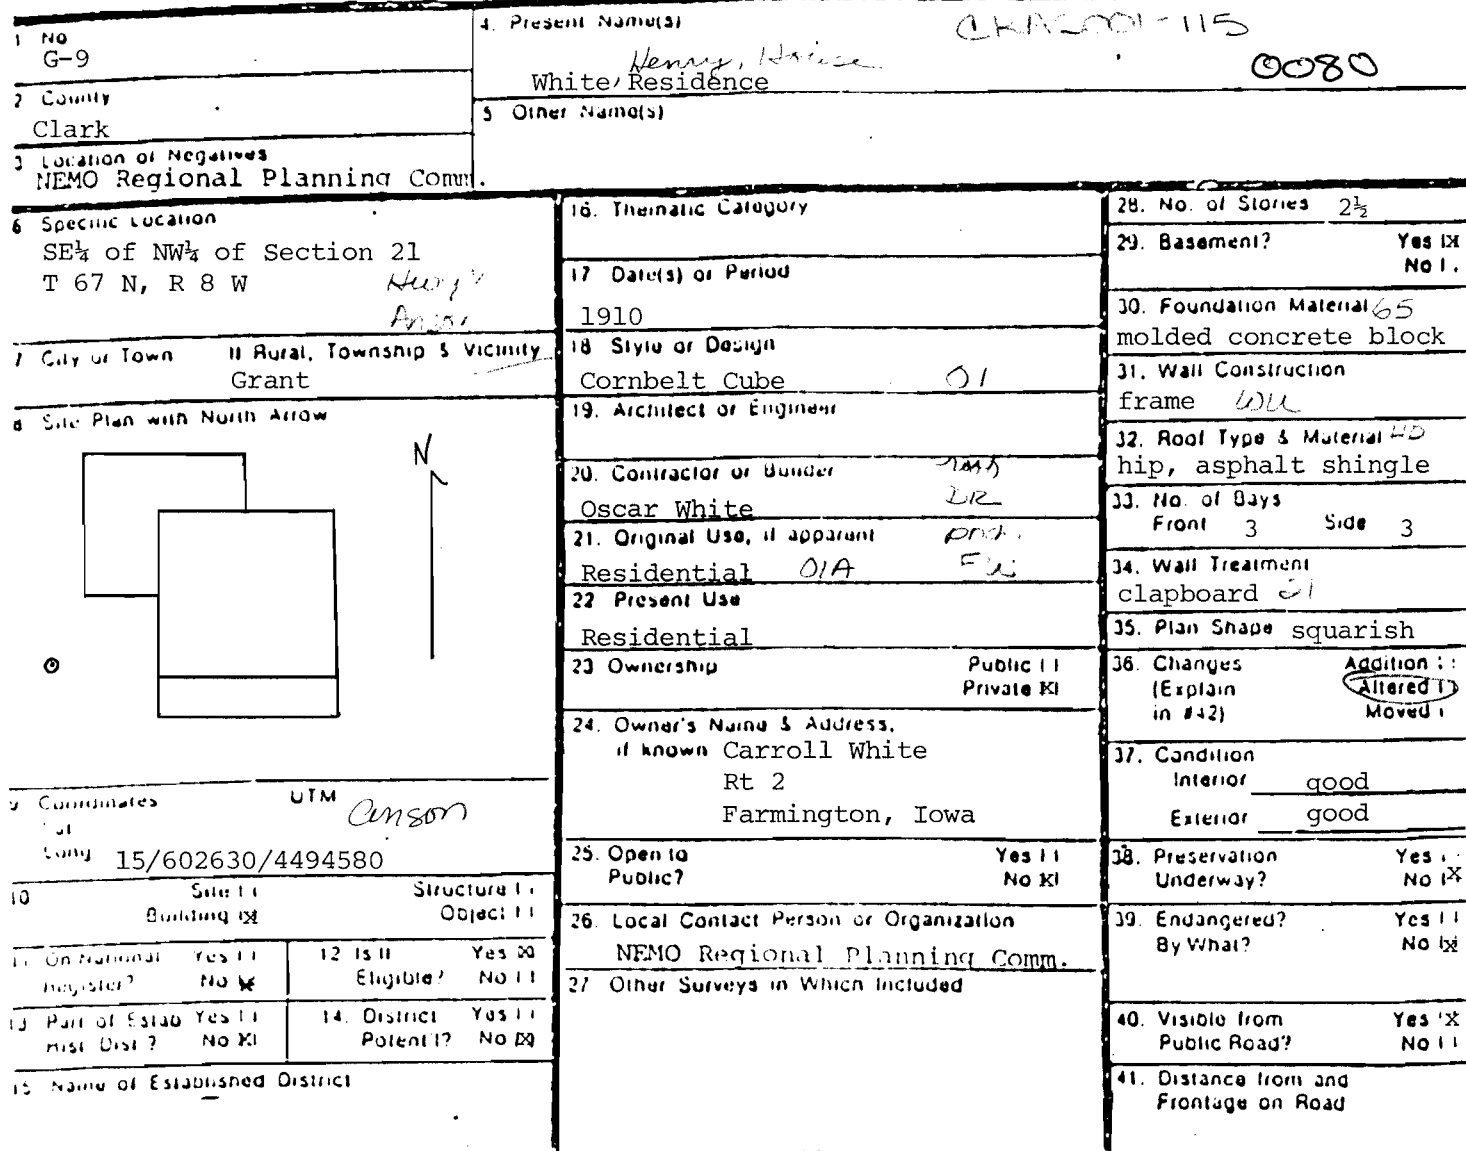 1 No
G-9
4. Present Name(s)
CKAS001-115
0080
Henry, House
White Residence
2 County
Clark
5 Other Name(s)
3 Location of Negatives
NEMO Regional Planning Comm.
6 Specific Location
SE¼ of NW¼ of Section 21
T 67 N, R 8 W
7 City or Town If Rural, Township & Vicinity
Grant
8 Site Plan with North Arrow
N
9 Coordinates UTM
Anson
Lat
Long 15/602630/4494580
10 Site [ ] Structure [ ]
Building [X] Object [ ]
11 On National Register? Yes [ ] No [X]
12 Is It Eligible? Yes [X] No [ ]
13 Part of Estab Hist Dist? Yes [ ] No [X]
14. District Potent'l? Yes [ ] No [X]
15 Name of Established District
16. Thematic Category
17 Date(s) or Period
1910
18 Style or Design
Cornbelt Cube 01
19. Architect or Engineer
20. Contractor or Builder
Oscar White
21. Original Use, if apparent
Residential 01A
22 Present Use
Residential
23 Ownership Public [ ]
Private [X]
24. Owner's Name & Address,
if known Carroll White
Rt 2
Farmington, Iowa
25. Open to Yes [ ]
Public? No [X]
26. Local Contact Person or Organization
NEMO Regional Planning Comm.
27 Other Surveys in Which Included
28. No. of Stories 2½
29. Basement? Yes [X]
No [ ]
30. Foundation Material 65
molded concrete block
31. Wall Construction
frame
32. Roof Type & Material
hip, asphalt shingle
33. No. of Bays
Front 3 Side 3
34. Wall Treatment
clapboard 21
35. Plan Shape squarish
36. Changes Addition [ ]
(Explain Altered [ ]
in #42) Moved [ ]
37. Condition
Interior good
Exterior good
38. Preservation Yes [ ]
Underway? No [X]
39. Endangered? Yes [ ]
By What? No [X]
40. Visible from Yes [X]
Public Road? No [ ]
41. Distance from and
Frontage on Road